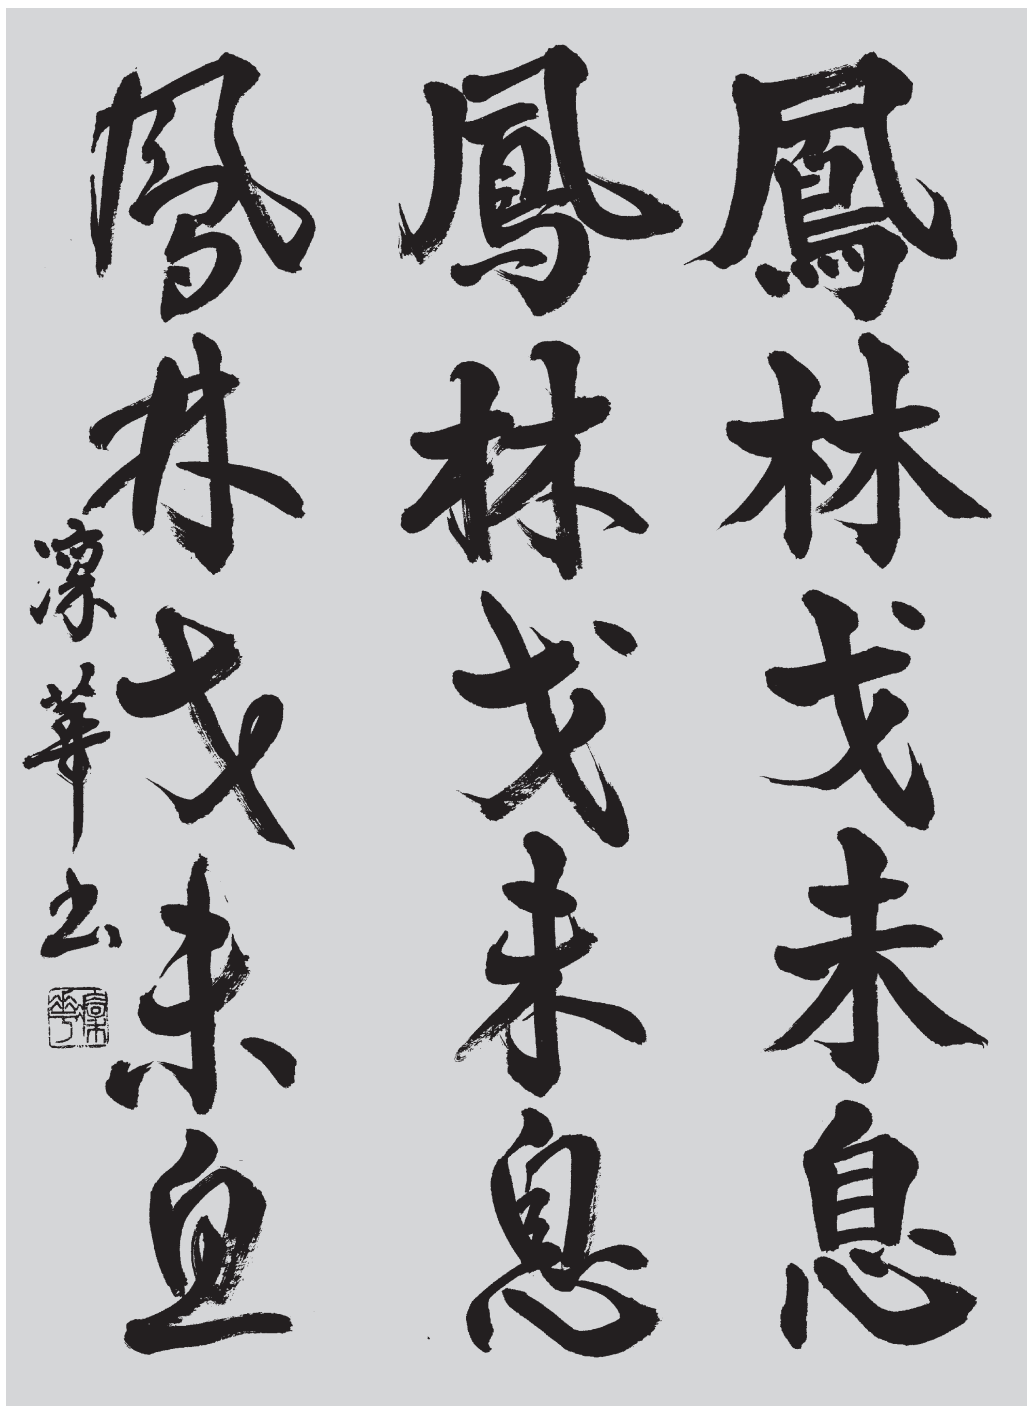 鳳林戈未息
鳳林戈未息
鳳林戈未息
凛華書
凛華